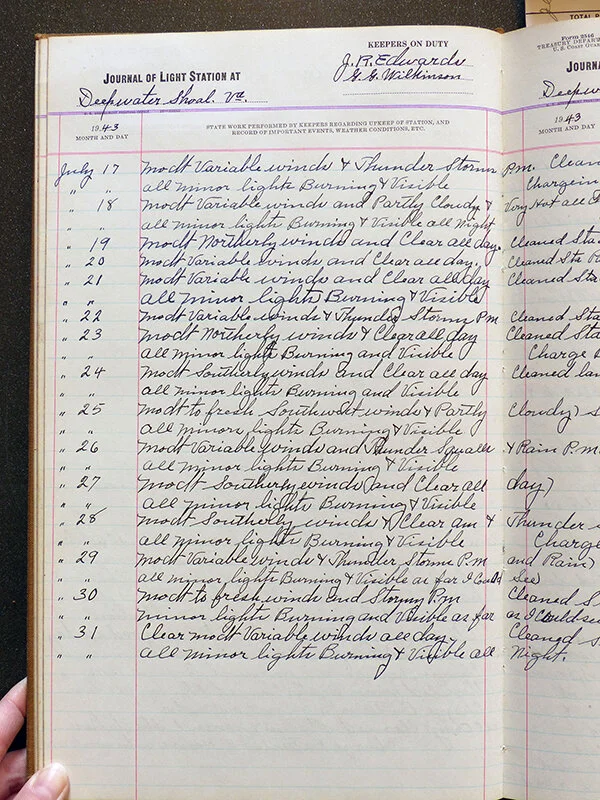 TOTAL P
KEEPERS ON DUTY
J. R. Edwards
G. G. Wilkinson
JOURNAL OF LIGHT STATION AT
Deepwater Shoal. Va.
1943
MONTH AND DAY
STATE WORK PERFORMED BY KEEPERS REGARDING UPKEEP OF STATION, AND
RECORD OF IMPORTANT EVENTS, WEATHER CONDITIONS, ETC.
Form 2516
TREASURY DEPAR
U. S. COAST GUAR
JOURNA
Deepw
1943
MONTH AND DAY
July 17 modt Variable winds & Thunder Storm P.m. Clean
" " all minor lights Burning & Visible Chargein
" 18 modt Variable winds and Partly Cloudy & Very Hot all
" " all minor lights Burning & Visible all Night
" 19 modt Northerly winds and Clear all day. Cleaned Sta
" 20 modt Variable winds and Clear all day. Cleaned Sta
" 21 modt Variable winds and Clear all day Cleaned Sta
" " all minor lights Burning & Visible
" 22 modt Variable winds & Thunder Storms P.m Cleaned Sta
" 23 modt Northerly winds & Clear all day Cleaned Sta
" " all minor lights Burning and Visible Charge
" 24 modt Southerly winds and Clear all day Cleaned lan
" " all minor lights Burning and Visible
" 25 modt to fresh Southwest winds & Partly Cloudy)
" " all minore lights Burning & Visible
" 26 modt Variable winds and Thunder Squalls & Rain P.m
" " all minor lights Burning & Visible
" 27 modt Southerly winds and Clear all day)
" " all minor lights Burning & Visible
" 28 modt Southerly winds & Clear am & Thunder
" " all minor lights Burning & Visible Charge
" 29 modt Variable winds & Thunder Storms P.m and Rain)
" " all minor lights Burning & Visible as far I Could See)
" 30 modt to fresh winds and Stormy P.m Cleaned S
" " minor lights Burning and Visible as far as I Could see
" 31 Clear modt Variable winds all day. Cleaned S
" " all minor lights Burning & Visible all Night.